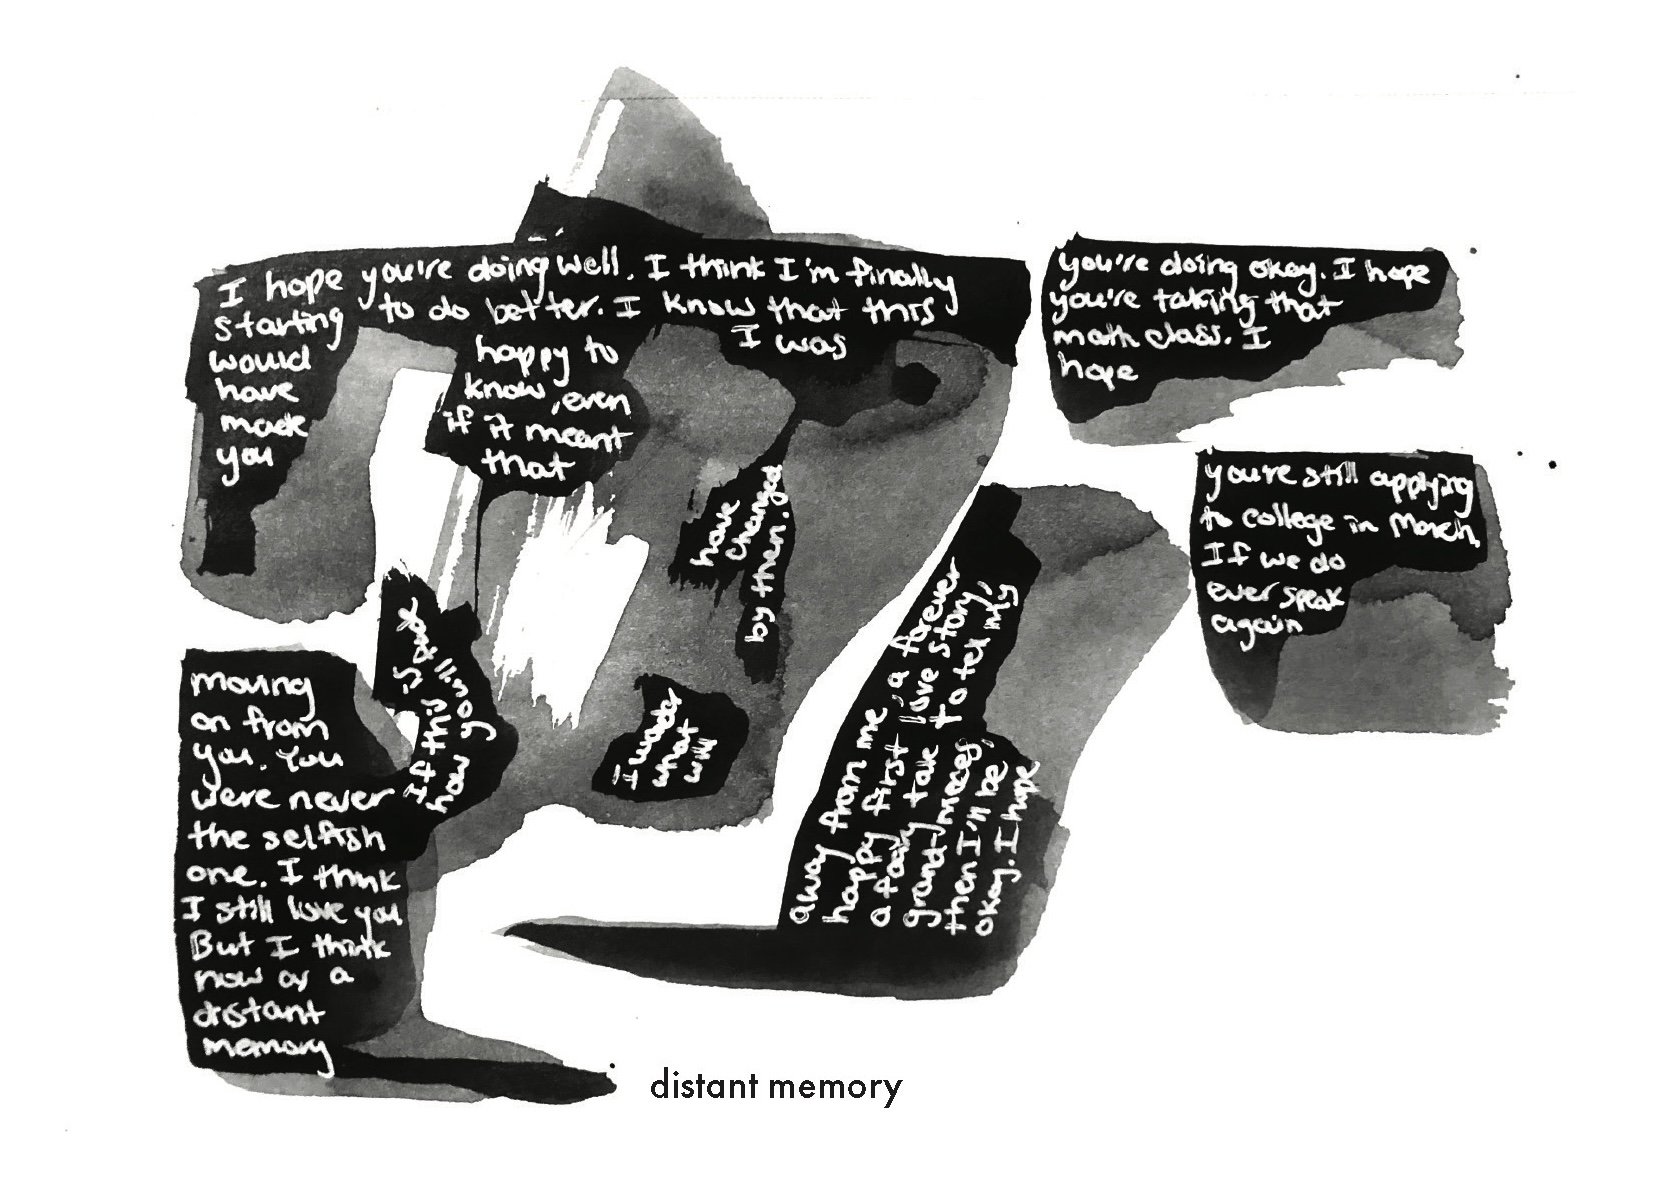 I hope you're doing well. I think I'm finally
starting to do better. I know that this
would
have
made
you
happy to
know, even
if it meant
that
I was
moving
on from
you. You
were never
the selfish
one. I think
I still love you
But I think
now as a
distant
memory
If this is
how you'll
away from me, a forever
happy first love story,
a fairy tale to tell my
grand-nieces,
then I'll be
okay. I hope
you're doing okay. I hope
you're taking that
math class. I
hope
you're still applying
to college in March.
If we do
ever speak
again
I wonder
what
will
have
changed
by then.
distant memory